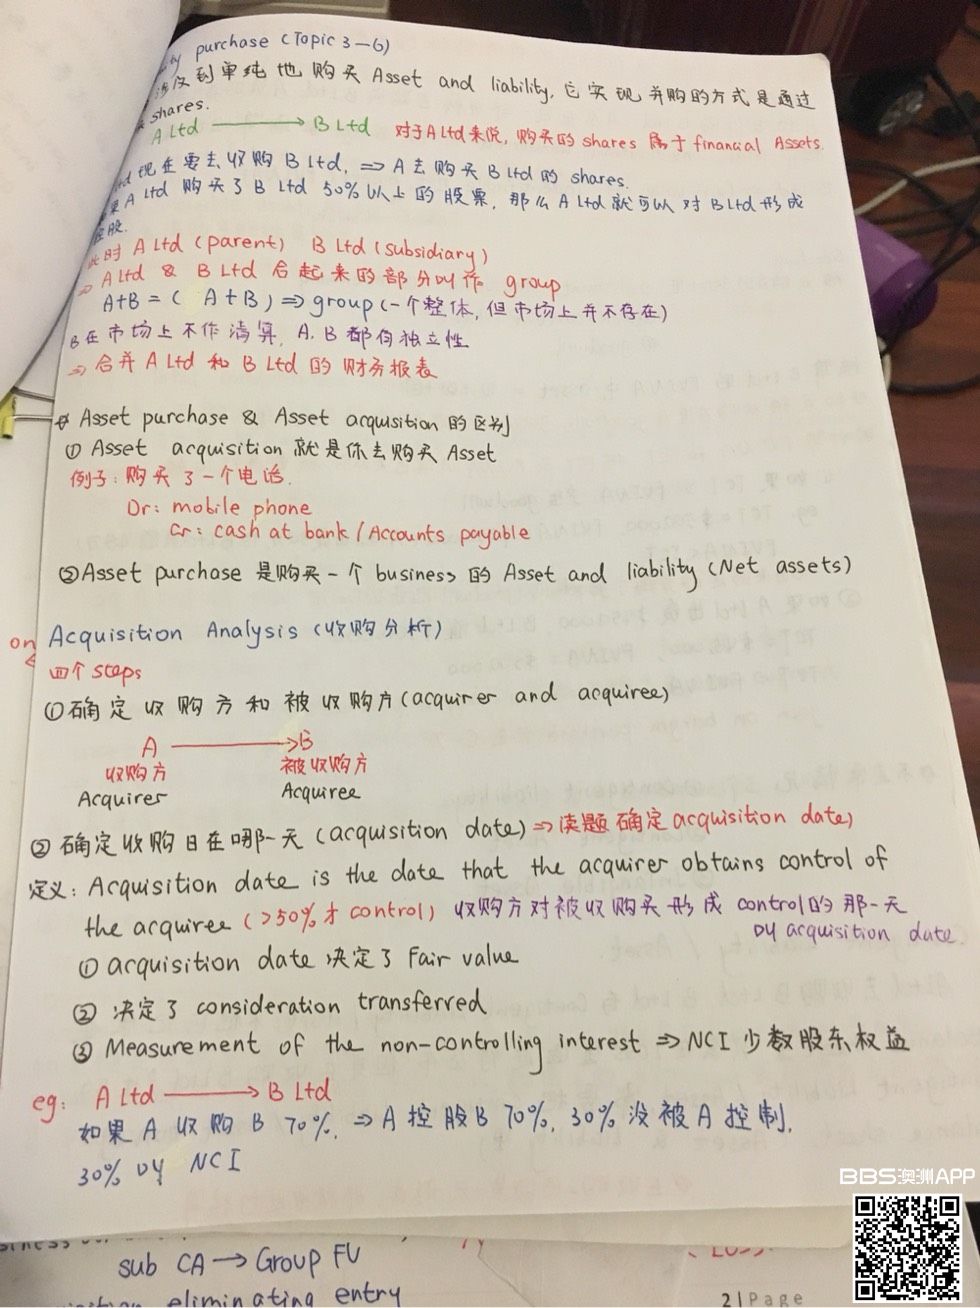 purchase (Topic 3-6)
涉及到单纯地购买 Asset and liability, 它实现并购的方式是通过
shares.
A Ltd → B Ltd 对于A Ltd来说, 购买的 shares 属于 financial Assets.
现在要去收购 B Ltd, ⇒ A去购买 B Ltd 的 shares.
果 A Ltd 购买了 B Ltd 50% 以上的股票, 那么 A Ltd 就可以对 B Ltd 形成
控股.
此时 A Ltd (parent) B Ltd (subsidiary)
⇒ A Ltd & B Ltd 合起来的部分叫作 group
A+B = ( A+B) ⇒ group (一个整体, 但市场上并不存在)
B在市场上不作清算, A. B 都有独立性
⇒ 合并 A Ltd 和 B Ltd 的财务报表
Asset purchase & Asset acquisition 的区别
① Asset acquisition 就是你去购买 Asset
例子: 购买了一个电话.
Dr: mobile phone
Cr: cash at bank / Accounts payable
② Asset purchase 是购买一个 business 的 Asset and liability (Net assets)
on
Acquisition Analysis (收购分析)
四个 steps
① 确定收购方和被收购方 (acquirer and acquiree)
A → B
收购方 被收购方
Acquirer Acquiree
② 确定收购日在哪一天 (acquisition date) ⇒ 读题确定 acquisition date)
定义: Acquisition date is the date that the acquirer obtains control of
the acquiree (>50% 才 control) 收购方对被收购买形成 control的那一天
叫 acquisition date.
① acquisition date 决定了 Fair value
② 决定了 consideration transferred
③ Measurement of the non-controlling interest ⇒ NCI 少数股东权益
eg: A Ltd → B Ltd
如果 A 收购 B 70%, ⇒ A 控股 B 70%, 30% 没被 A 控制.
30% 叫 NCI
BBS澳洲APP
sub CA → Group FV
eliminating entry
2 | Page